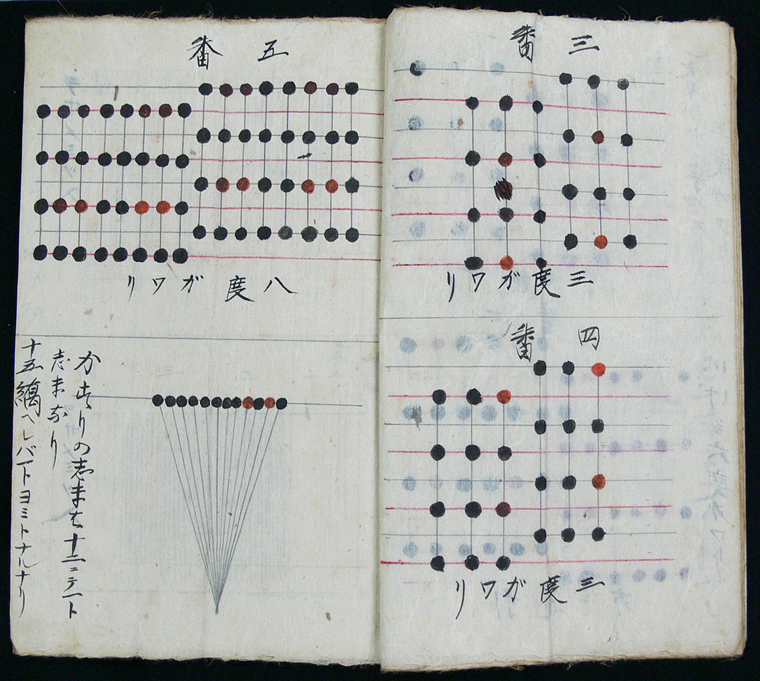 三番
三度ガワリ
四番
三度ガワリ
五番
八度ガワリ
かすりの志まは十二ニテ一ト
志まなり
十五縞ヘレバ一トヨミトナルナリ